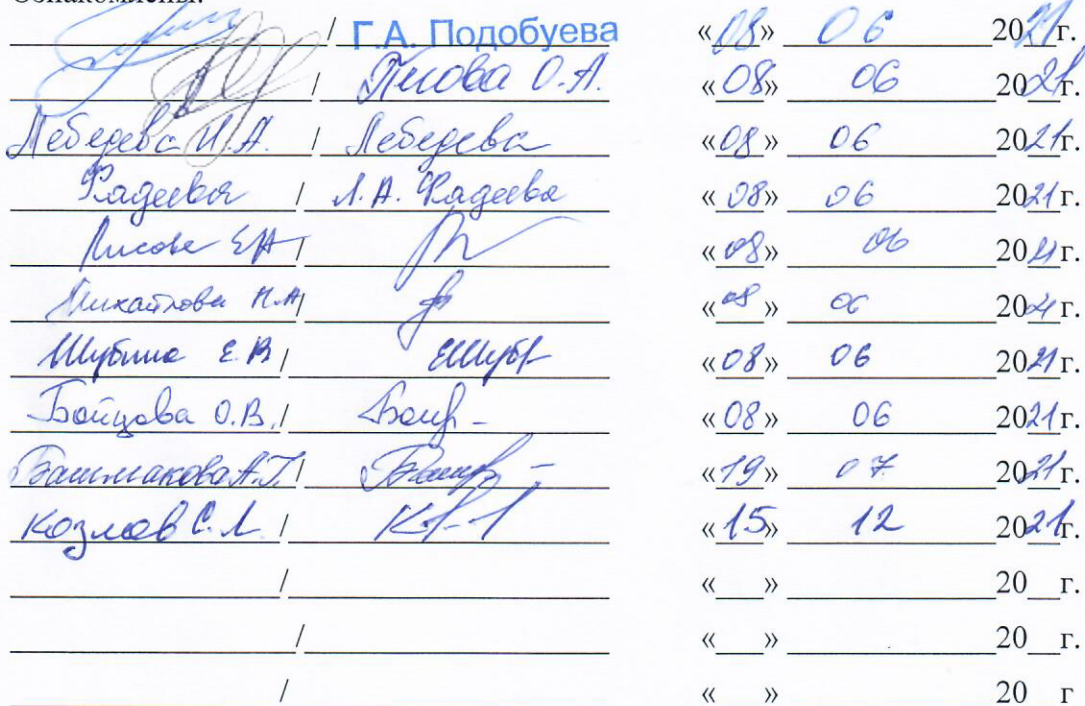 Ознакомлены:
/ Г.А. Подобуева «08» 06 2021г.
/ О.А. «08» 06 2021г.
Лебедева И.А. / Лебедева «08» 06 2021г.
Фадеева / Л.А. Фадеева «08» 06 2021г.
Лисова Е.А / «08» 06 2021г.
Михайлова Н.А / «08» 06 2021г.
Шубина Е.В / ЕШуб «08» 06 2021г.
Бойцова О.В. / «08» 06 2021г.
Башмакова А.Г. / «19» 07 2021г.
Козлов С.Л. / «15» 12 2021г.
/ « » 20 г.
/ « » 20 г.
/ « » 20 г